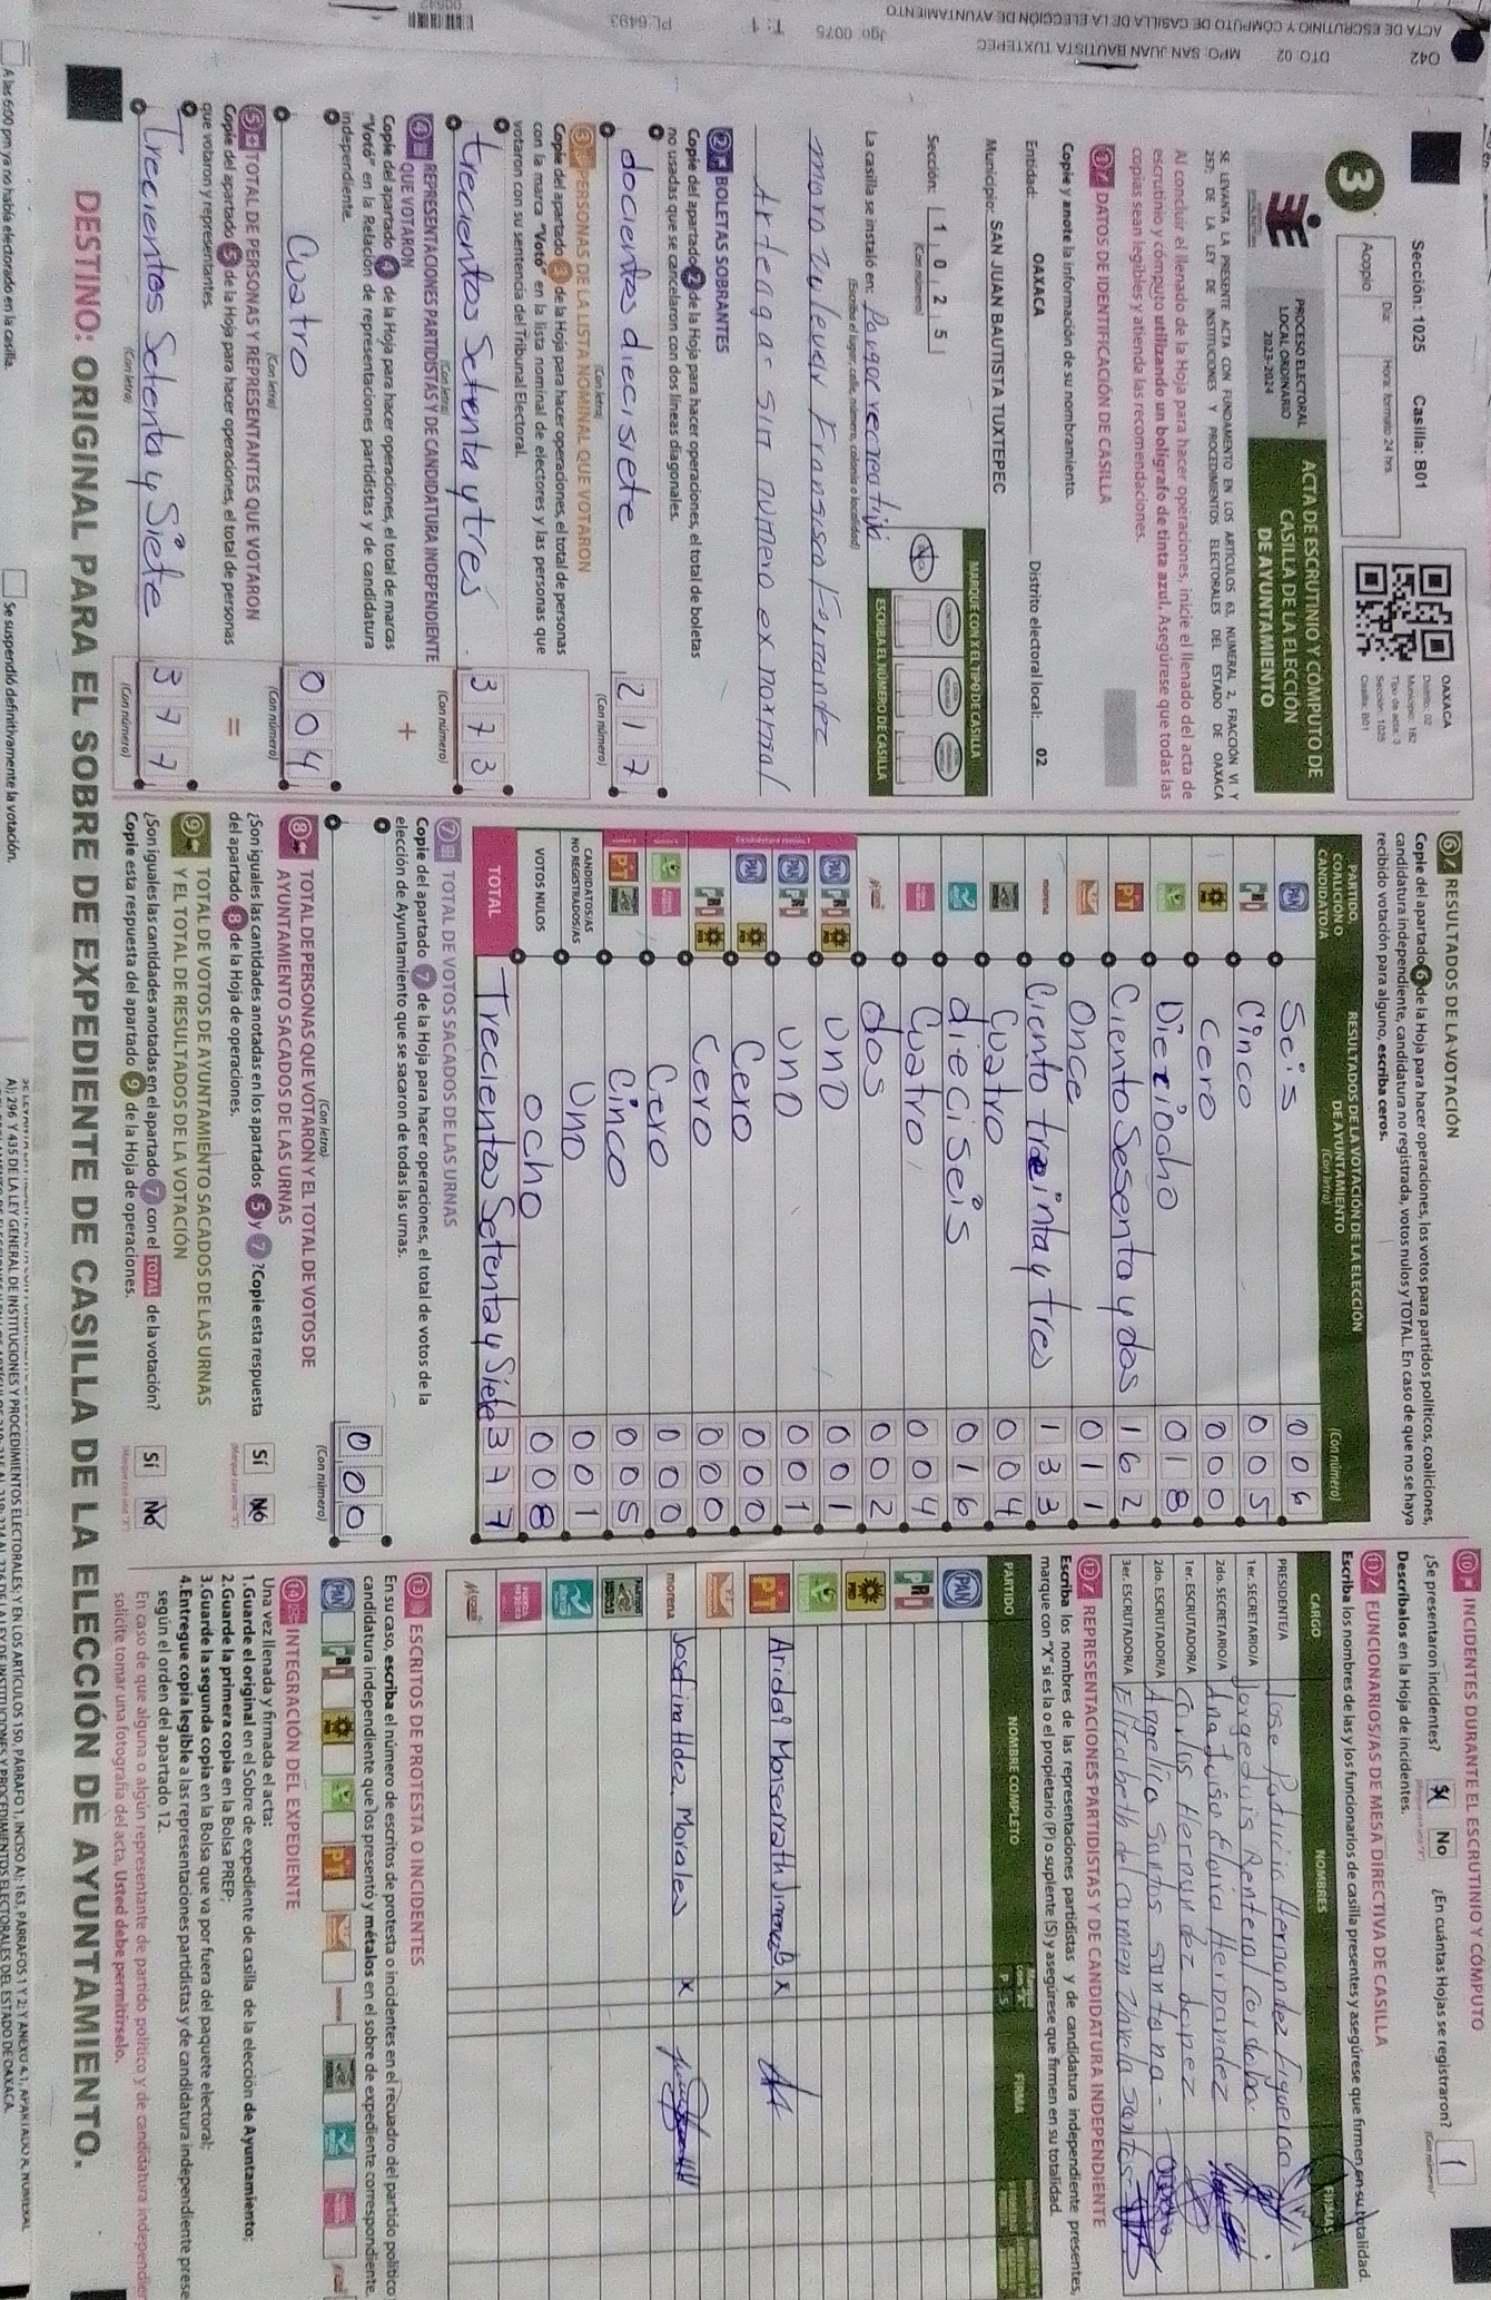 042
DTO: 02
MPO: SAN JUAN BAUTISTA TUXTEPEC
Jgo: 0075
T: 1
PL:6493
ACTA DE ESCRUTINIO Y CÓMPUTO DE CASILLA DE LA ELECCIÓN DE AYUNTAMIENTO
Sección: 1025 Casilla: B01
3
Acopio
Día:
Hora: formato 24 hrs.
OAXACA
Distrito: 02
Municipio: 182
Tipo de acta: 3
Sección: 1025
Casilla: B01
PROCESO ELECTORAL
LOCAL ORDINARIO
2023-2024
ACTA DE ESCRUTINIO Y CÓMPUTO DE
CASILLA DE LA ELECCIÓN
DE AYUNTAMIENTO
SE LEVANTA LA PRESENTE ACTA CON FUNDAMENTO EN LOS ARTÍCULOS 63, NUMERAL 2, FRACCIÓN VI Y
257; DE LA LEY DE INSTITUCIONES Y PROCEDIMIENTOS ELECTORALES DEL ESTADO DE OAXACA
Al concluir el llenado de la Hoja para hacer operaciones, inicie el llenado del acta de
escrutinio y cómputo utilizando un bolígrafo de tinta azul. Asegúrese que todas las
copias sean legibles y atienda las recomendaciones.
1 DATOS DE IDENTIFICACIÓN DE CASILLA
Copie y anote la información de su nombramiento.
Entidad: OAXACA Distrito electoral local: 02
Municipio: SAN JUAN BAUTISTA TUXTEPEC
Sección: 1 0 2 5
(Con número)
MARQUE CON X EL TIPO DE CASILLA
ESCRIBA EL NÚMERO DE CASILLA
La casilla se instaló en: Parque recreativo
(Escriba el lugar, calle, número, colonia o localidad)
moro zulevar Fransisco Fernandez
Arteaga - sin numero ex normal
2 BOLETAS SOBRANTES
Copie del apartado 2 de la Hoja para hacer operaciones, el total de boletas
no usadas que se cancelaron con dos líneas diagonales.
docientos diecisiete 2 1 7
(Con letra) (Con número)
3 PERSONAS DE LA LISTA NOMINAL QUE VOTARON
Copie del apartado 3 de la Hoja para hacer operaciones, el total de personas
con la marca "Votó" en la lista nominal de electores y las personas que
votaron con su sentencia del Tribunal Electoral.
trecientos setenta y tres 3 7 3
(Con letra) (Con número)
4 REPRESENTACIONES PARTIDISTAS Y DE CANDIDATURA INDEPENDIENTE
QUE VOTARON
+
Copie del apartado 4 de la Hoja para hacer operaciones, el total de marcas
"Votó" en la Relación de representaciones partidistas y de candidatura
independiente.
Cuatro 0 0 4
(Con letra) (Con número)
5 TOTAL DE PERSONAS Y REPRESENTANTES QUE VOTARON
=
Copie del apartado 5 de la Hoja para hacer operaciones, el total de personas
que votaron y representantes.
Trecientos Setenta y Siete 3 7 7
(Con letra) (Con número)
6 RESULTADOS DE LA VOTACIÓN
Copie del apartado 6 de la Hoja para hacer operaciones, los votos para partidos políticos, coaliciones,
candidatura independiente, candidatura no registrada, votos nulos y TOTAL. En caso de que no se haya
recibido votación para alguno, escriba ceros.
PARTIDO, COALICIÓN O CANDIDATO/A
RESULTADOS DE LA VOTACIÓN DE LA ELECCIÓN DE AYUNTAMIENTO
(Con letra) (Con número)
PAN Seis 0 0 6
PRI Cinco 0 0 5
PRD Cero 0 0 0
Dieziocho 0 1 8
PT Ciento Sesenta y dos 1 6 2
Once 0 1 1
morena Ciento treinta y tres 1 3 3
Cuatro 0 0 4
dieciseis 0 1 6
Cuatro 0 0 4
dos 0 0 2
PAN PRI PRD uno 0 0 1
PAN PRI uno 0 0 1
PAN PRD Cero 0 0 0
PRI PRD Cero 0 0 0
Cero 0 0 0
PT Cinco 0 0 5
CANDIDATOS/AS NO REGISTRADOS/AS Uno 0 0 1
VOTOS NULOS ocho 0 0 8
TOTAL Trecientos Setenta y Siete 3 7 7
7 TOTAL DE VOTOS SACADOS DE LAS URNAS
Copie del apartado 7 de la Hoja para hacer operaciones, el total de votos de la
elección de Ayuntamiento que se sacaron de todas las urnas.
0 0 0
(Con letra) (Con número)
8 TOTAL DE PERSONAS QUE VOTARON Y EL TOTAL DE VOTOS DE
AYUNTAMIENTO SACADOS DE LAS URNAS
¿Son iguales las cantidades anotadas en los apartados 5 y 7 ? Copie esta respuesta
del apartado 8 de la Hoja de operaciones.
Sí No
9 TOTAL DE VOTOS DE AYUNTAMIENTO SACADOS DE LAS URNAS
Y EL TOTAL DE RESULTADOS DE LA VOTACIÓN
¿Son iguales las cantidades anotadas en el apartado 7 con el TOTAL de la votación?
Copie esta respuesta del apartado 9 de la Hoja de operaciones.
Sí No
10 INCIDENTES DURANTE EL ESCRUTINIO Y CÓMPUTO
¿Se presentaron incidentes? Sí No ¿En cuántas Hojas se registraron? 1
Descríbalos en la Hoja de incidentes.
11 FUNCIONARIOS/AS DE MESA DIRECTIVA DE CASILLA
Escriba los nombres de las y los funcionarios de casilla presentes y asegúrese que firmen en su totalidad.
CARGO NOMBRES FIRMAS
PRESIDENTE/A Jose Patricio Hernandez Figueroa
1er. SECRETARIO/A Jorge Luis Renteral Cordoba.
2do. SECRETARIO/A Ana Luisa Elvira Hernandez
1er. ESCRUTADOR/A Carlos Hernandez dopez
2do. ESCRUTADOR/A Angelica Santos Santana -
3er. ESCRUTADOR/A Elizabeth del Carmen Zavala Santos
12 REPRESENTACIONES PARTIDISTAS Y DE CANDIDATURA INDEPENDIENTE
Escriba los nombres de las representaciones partidistas y de candidatura independiente presentes,
marque con "X" si es la o el propietario (P) o suplente (S) y asegúrese que firmen en su totalidad.
PARTIDO NOMBRE COMPLETO P S FIRMA
PAN
PRI
PRD
PT Aridai Monserrath Jimenez B x
morena Josefina Hdez. Morales x
13 ESCRITOS DE PROTESTA O INCIDENTES
En su caso, escriba el número de escritos de protesta o incidentes en el recuadro del partido político
candidatura independiente que los presentó y métalos en el sobre de expediente correspondiente.
PAN PRI PRD PT morena
14 INTEGRACIÓN DEL EXPEDIENTE
Una vez llenada y firmada el acta:
1.Guarde el original en el Sobre de expediente de casilla de la elección de Ayuntamiento;
2.Guarde la primera copia en la Bolsa PREP;
3.Guarde la segunda copia en la Bolsa que va por fuera del paquete electoral;
4.Entregue copia legible a las representaciones partidistas y de candidatura independiente prese
según el orden del apartado 12.
En caso de que alguna o algún representante de partido político y de candidatura independien
solicite tomar una fotografía del acta, Usted debe permitírselo.
DESTINO: ORIGINAL PARA EL SOBRE DE EXPEDIENTE DE CASILLA DE LA ELECCIÓN DE AYUNTAMIENTO.
A las 6:00 pm ya no había electorado en la casilla.
Se suspendió definitivamente la votación.